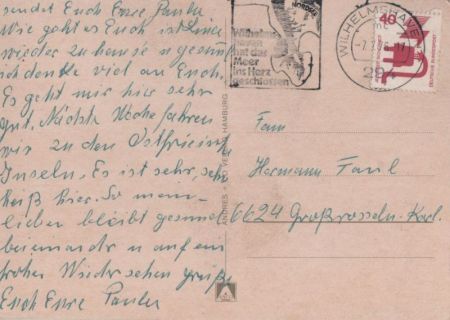 sendet Euch Eure Paula
Wie geht es Euch ist
wieder zu hause u gesund
ich denke viel an Euch.
Es geht mir hier sehr
gut. Nächste Woche fahren
wir zu den Ostfriesing
Inseln. Es ist sehr, sehr
heiß hier. So mein
lieber bleibt gesund
beieinander u auf ein
frohes Wiedersehen grüße
Euch Eure Paula
ANDRES + CO VERLAG HAMBURG
NORDSEE
Wilhelms-
haven
hat das
Meer
ins Herz
geschlossen
WILHELMSHAVEN
294
40
Fam
Hermann Faul
6624 Großrosseln-Karl.